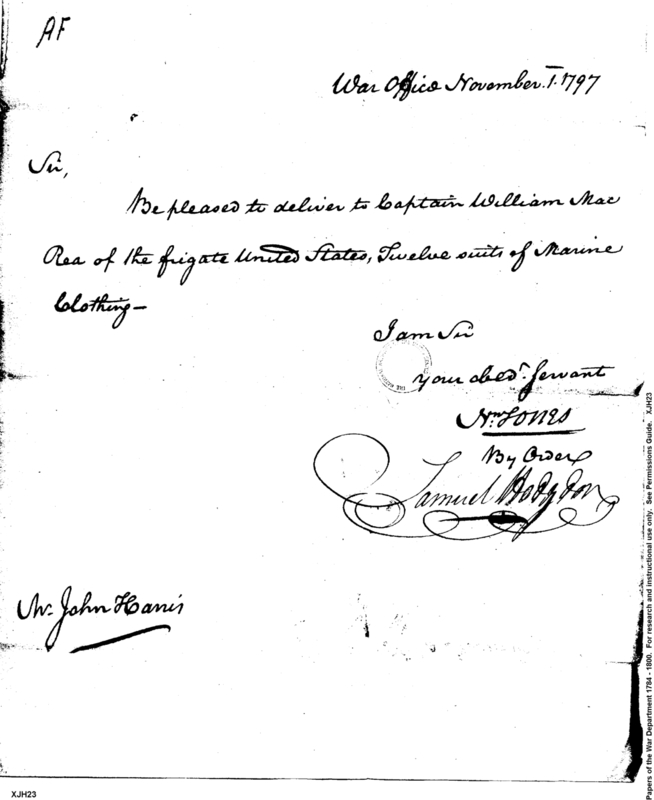 AF
War Office November. 1. 1797
Sir,
Be pleased to deliver to Captain William Mac
Rea of the frigate United States, Twelve suits of Marine
Clothing—
I am Sir
your obedt. Servant
Wm Jones
By Order
Samuel Hodgdon
Mr. John Harris
XJH23
Papers of the War Department 1784 - 1800. For research and instructional use only. See Permissions Guide. XJH23